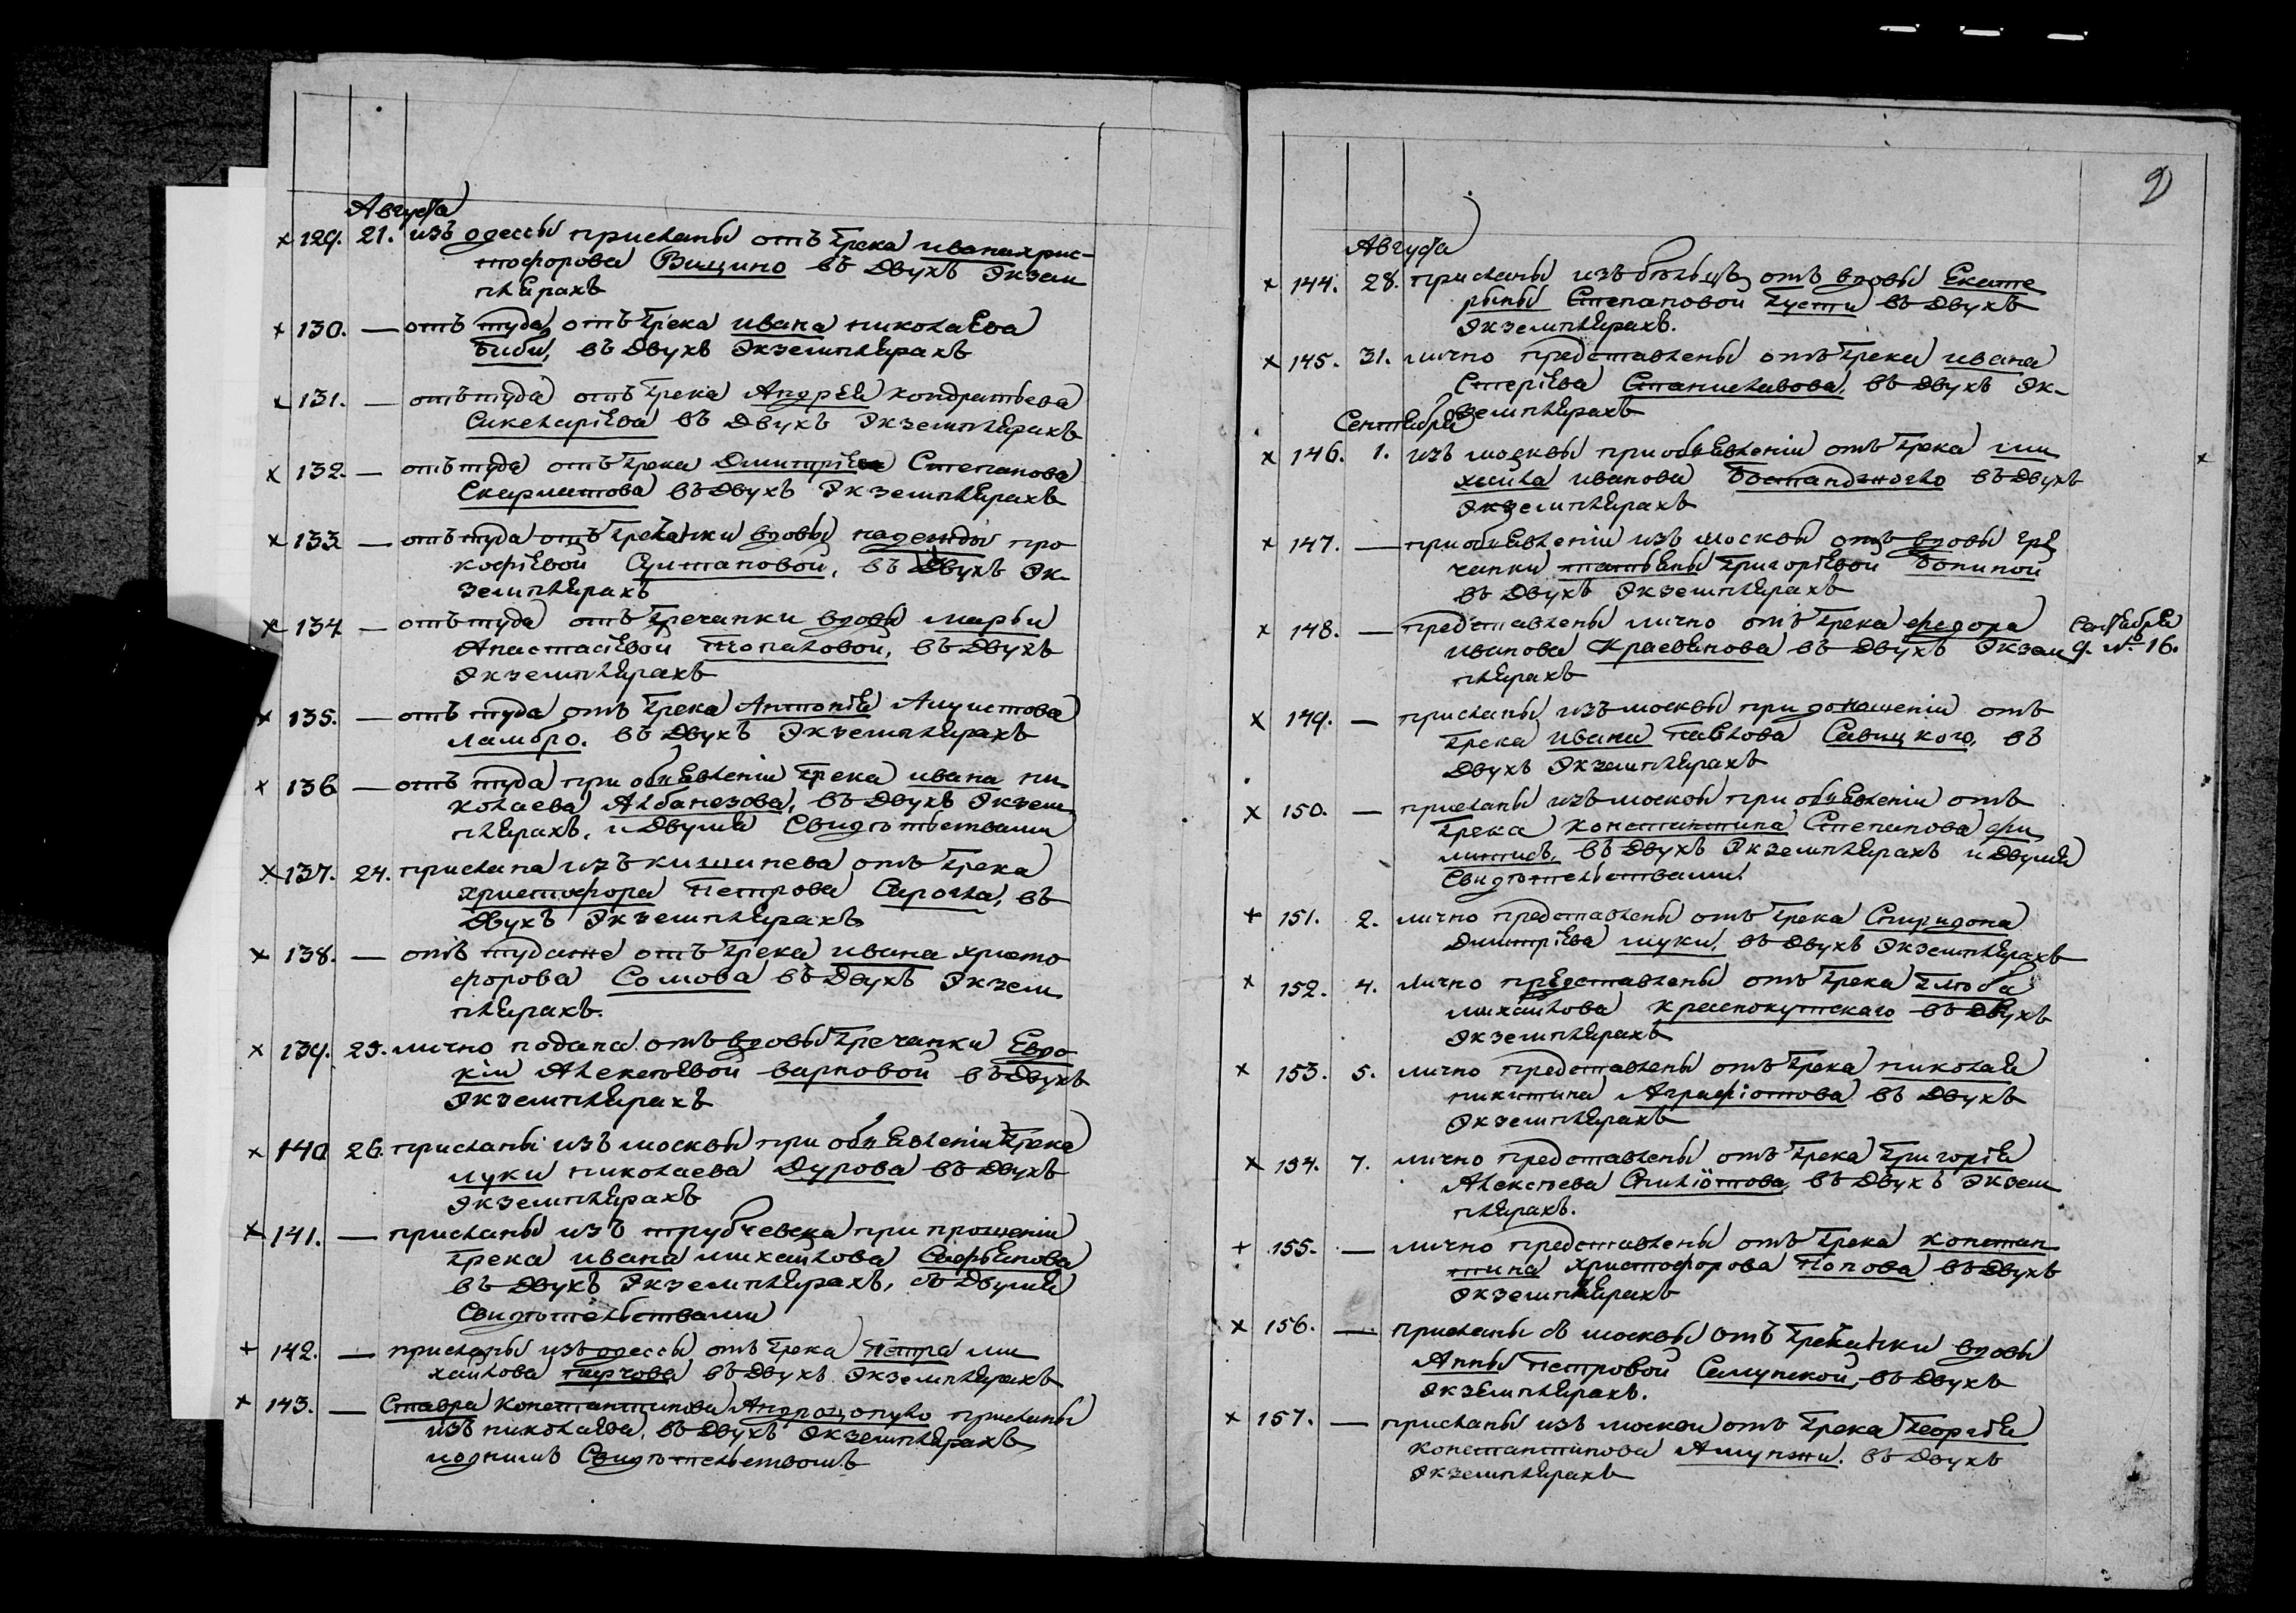 Августа
× 129. 21. изъ одессы присланы отъ Грека ивана хрис-
тофорова Вицино въ Двухъ Экзем
плярахъ
× 130. — отъ туда отъ Грека ивана николаева
Биби, въ Двухъ Экземплярахъ
× 131. — отътуда отъ Грека Андрея кондратьева
Сикеларіева въ Двухъ Экземплярахъ
× 132. — отътуда отъ Грека Дмитріева Степанова
Скарматова въ Двухъ Экземплярахъ
× 133 — отътуда отъ Гречанки вдовы надежды про
кофіевой Султановой, въ Двухъ Эк-
земплярахъ
× 134 — отътуда отъ Гречанки вдовы марьи
Анастасіевой Топаловой, въ Двухъ
Экземплярахъ
× 135. — отъ туда отъ Грека Антонія Августова
Ламбро. въ Двухъ Экземплярахъ
× 136 — отъ туда при объявленіи Грека ивана ни-
колаева Албанезова, въ Двухъ Экзем
плярахъ, и Двумя Свидѣтельствами
× 137. 24. прислана изъ кишинева отъ Грека
христофора Петрова Сарогла, въ
Двухъ Экземплярахъ
× 138. — отъ тудаже отъ Грека ивана христо
форова Сомова въ Двухъ Экзем
плярахъ.
× 139. 25. лично подана отъ вдовы Гречанки Евдо
кіи Алексѣевой варновой въ Двухъ
Экземплярахъ
× 140 26. присланы изъ москвы при объявленіи Грека
луки николаева Дурова въ Двухъ
Экземплярахъ
× 141. — присланы изъ трубчевска при прошеніи
Грека ивана михайлова Сафьянова
въ Двухъ Экземплярахъ, съ Двумя
Свидѣтельствами
+ 142. — присланы изъ одессы отъ Грека Петра ми
хайлова въ Двухъ Экземплярахъ
× 143. — Ставра Константинова присланы
изъ николаева, въ Двухъ Экземплярахъ
иоднимъ Свидѣтельствомъ
9
Августа
× 144. 28. присланы изъ бѣльцъ отъ вдовы Екате
рины Степановой Густи въ Двухъ
Экземплярахъ.
× 145. 31. лично представлены отъ Грека ивана
Стеріева Станиславова, въ Двухъ Эк-
земплярахъ
Сентября
× 146. 1. изъ москвы приобъявленіи отъ Грека ми
хаила иванова Бостанджогло въ Двухъ
Экземплярахъ
× 147. — приобъявленіи изъ москвы отъ вдовы гре
чанки татьяны Григорьевой Бониной
въ Двухъ Экземплярахъ
× 148. — представлены лично отъ Грека федора
иванова Краеванова въ Двухъ Экзем
плярахъ
Сентября
9. № 16.
× 149. — присланы изъ москвы при доношеніи отъ
Грека ивана Павлова Савицкого, въ
Двухъ Экземплярахъ
× 150. — присланы изъ москвы при объявленіи отъ
Грека константина Степанова фи
въ Двухъ Экземплярахъ и Двумя
Свидѣтельствами
+ 151. 2. лично представлены отъ Грека Спиридона
Дмитріева луки, въ Двухъ Экземплярахъ
× 152. 4. лично представлены отъ Грека Глеба
михайлова краснокутскаго въ Двухъ
Экземплярахъ
× 153. 5. лично представлены отъ Грека николая
никитина Аграфіотова въ Двухъ
Экземплярахъ
× 154. 7. лично представлены отъ Грека Григорія
Алексѣева Стиліотова въ Двухъ Экзем
плярахъ.
+ 155. — лично представлены отъ Грека констан
тина христофорова Попова въ Двухъ
Экземплярахъ
× 156. — присланы съ москвы отъ Гречанки вдовы
Анны Петровой Самунской, въ Двухъ
экземплярахъ.
× 157. — присланы изъ москвы отъ Грека Георгія
константинова въ Двухъ
Экземплярахъ